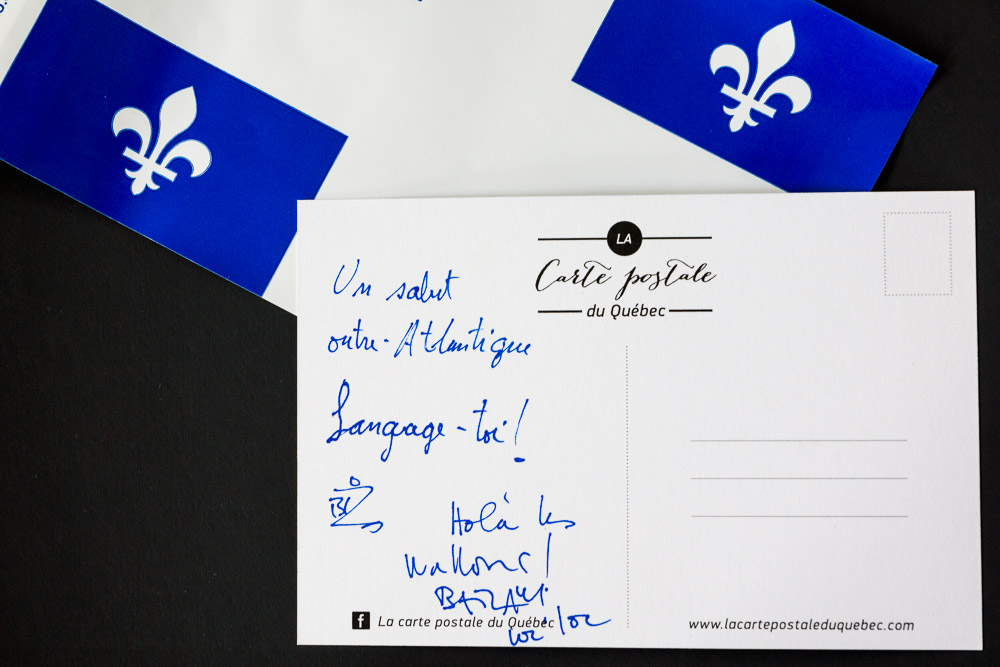 LA
Carte postale
du Québec
Un salut
outre-Atlantique
Langage-toi!
Holà les
wallons!
La carte postale du Québec
www.lacartepostaleduquebec.com